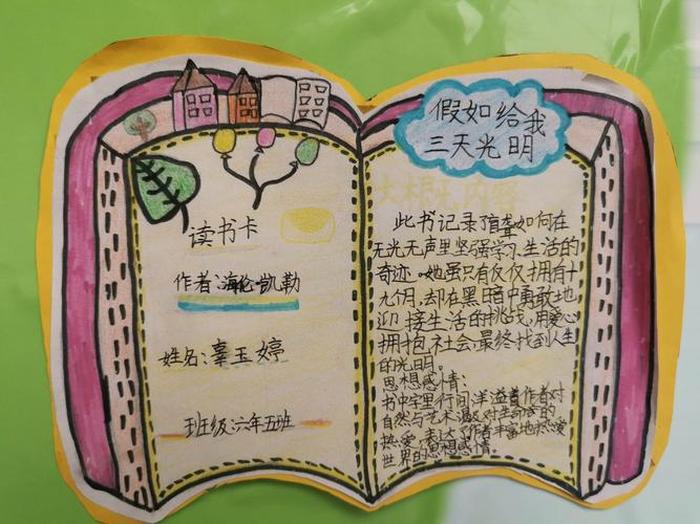 读书卡
作者:海伦·凯勒
姓名:辜玉婷
班级:六年五班
假如给我
三天光明
此书记录了盲聋如何在
无光无声里坚强学习、生活的
奇迹。她虽只有仅仅拥有十
九个月,却在黑暗中勇敢地
迎接生活的挑战,用爱心
拥抱社会,最终找到人生
的光明。
思想感情:
书中字里行间洋溢着作者对
自然与艺术以及对生命的
热爱,表达了作者丰富地热爱
世界的思想感情。